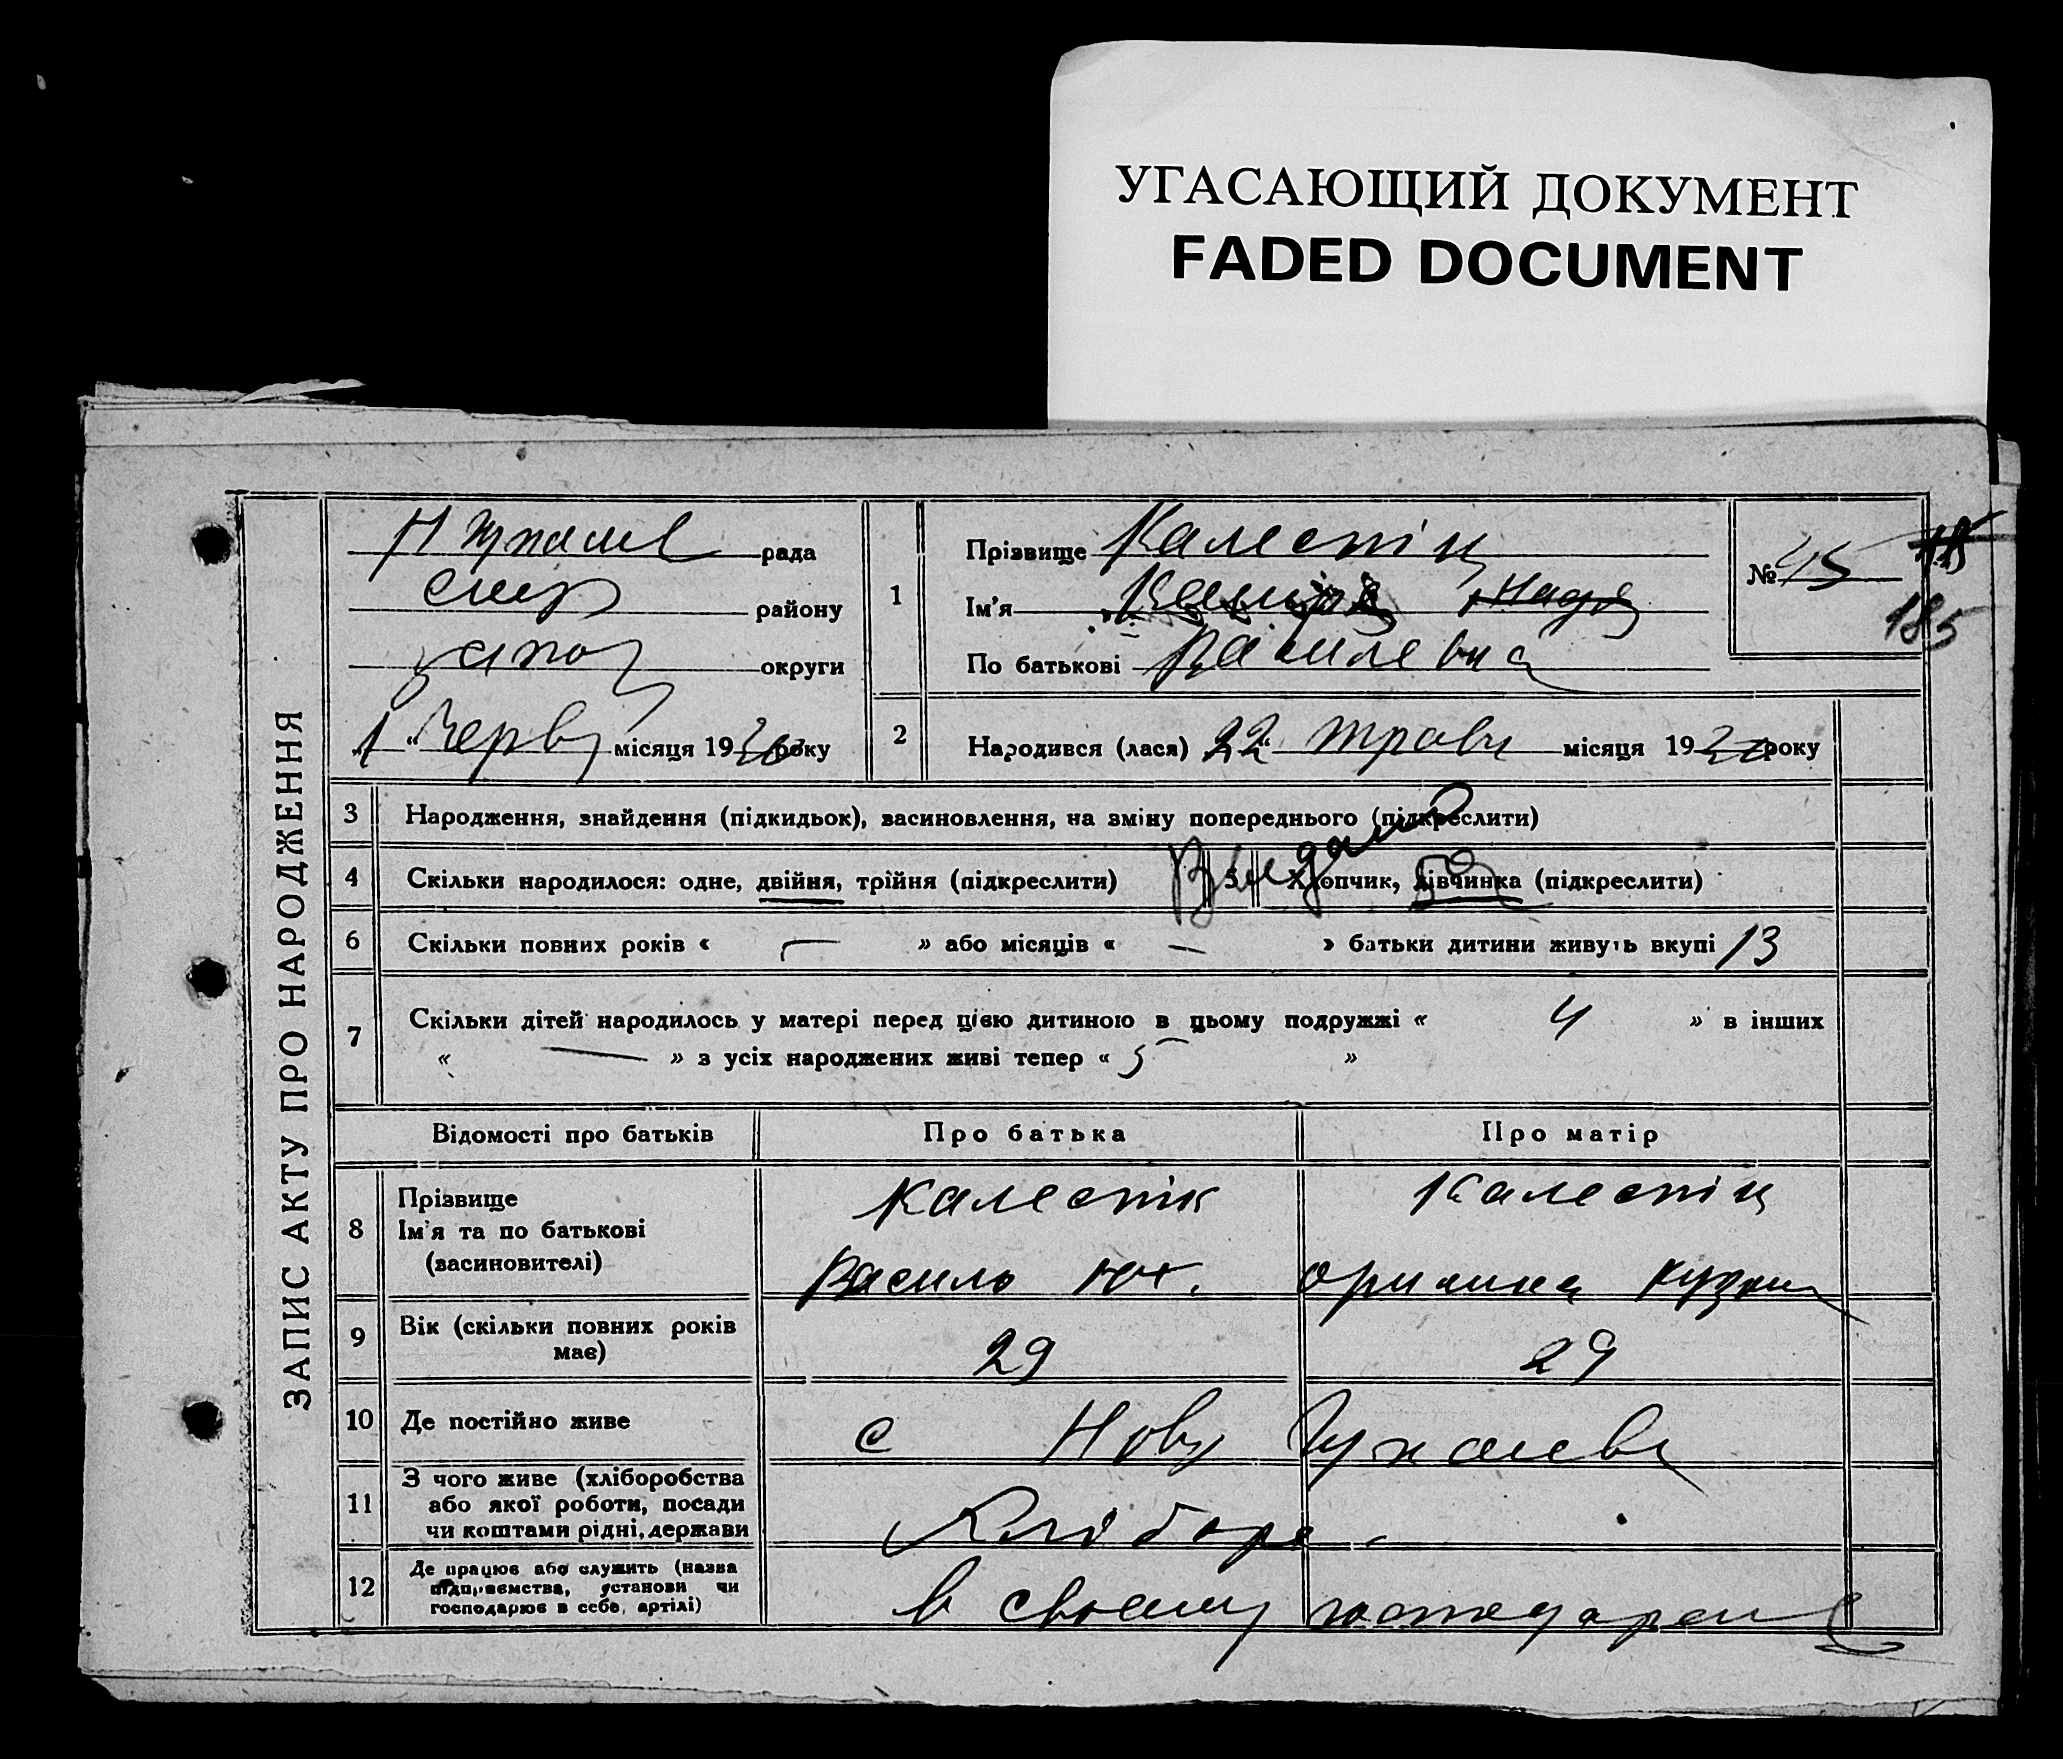 УГАСАЮЩИЙ ДОКУМЕНТ
FADED DOCUMENT
ЗАПИС АКТУ ПРО НАРОДЖЕННЯ
рада
району
округи
1 Черв місяця 1930 року
1
Прізвище Калестін
Ім'я Надя
По батькові Василевна
№ 45
185
2 Народився (лася) 22 Травн місяця 1930 року
3 Народження, знайдення (підкидьок), васиновлення, на зміну попереднього (підкреслити)
4 Скільки народилося: одне, двійня, трійня (підкреслити) 5 Хлопчик, дівчинка (підкреслити)
6 Скільки повних років « — » або місяців « — » батьки дитини живуть вкупі 13
7 Скільки дітей народилось у матері перед цією дитиною в цьому подружжі « 4 » в інших
« — » з усіх народжених живі тепер « 5 »
Відомості про батьків Про батька Про матір
8 Прізвище Калестін Калестін
Ім'я та по батькові
(васиновителі) Василь
9 Вік (скільки повних років 29 29
має)
10 Де постійно живе с Нову
11 З чого живе (хліборобства
або якої роботи, посади
чи коштами рідні, держави Хлібор
12 Де працює або служить (назва
підприємства, установи чи
господарює в себе, артілі) в своему господарстві